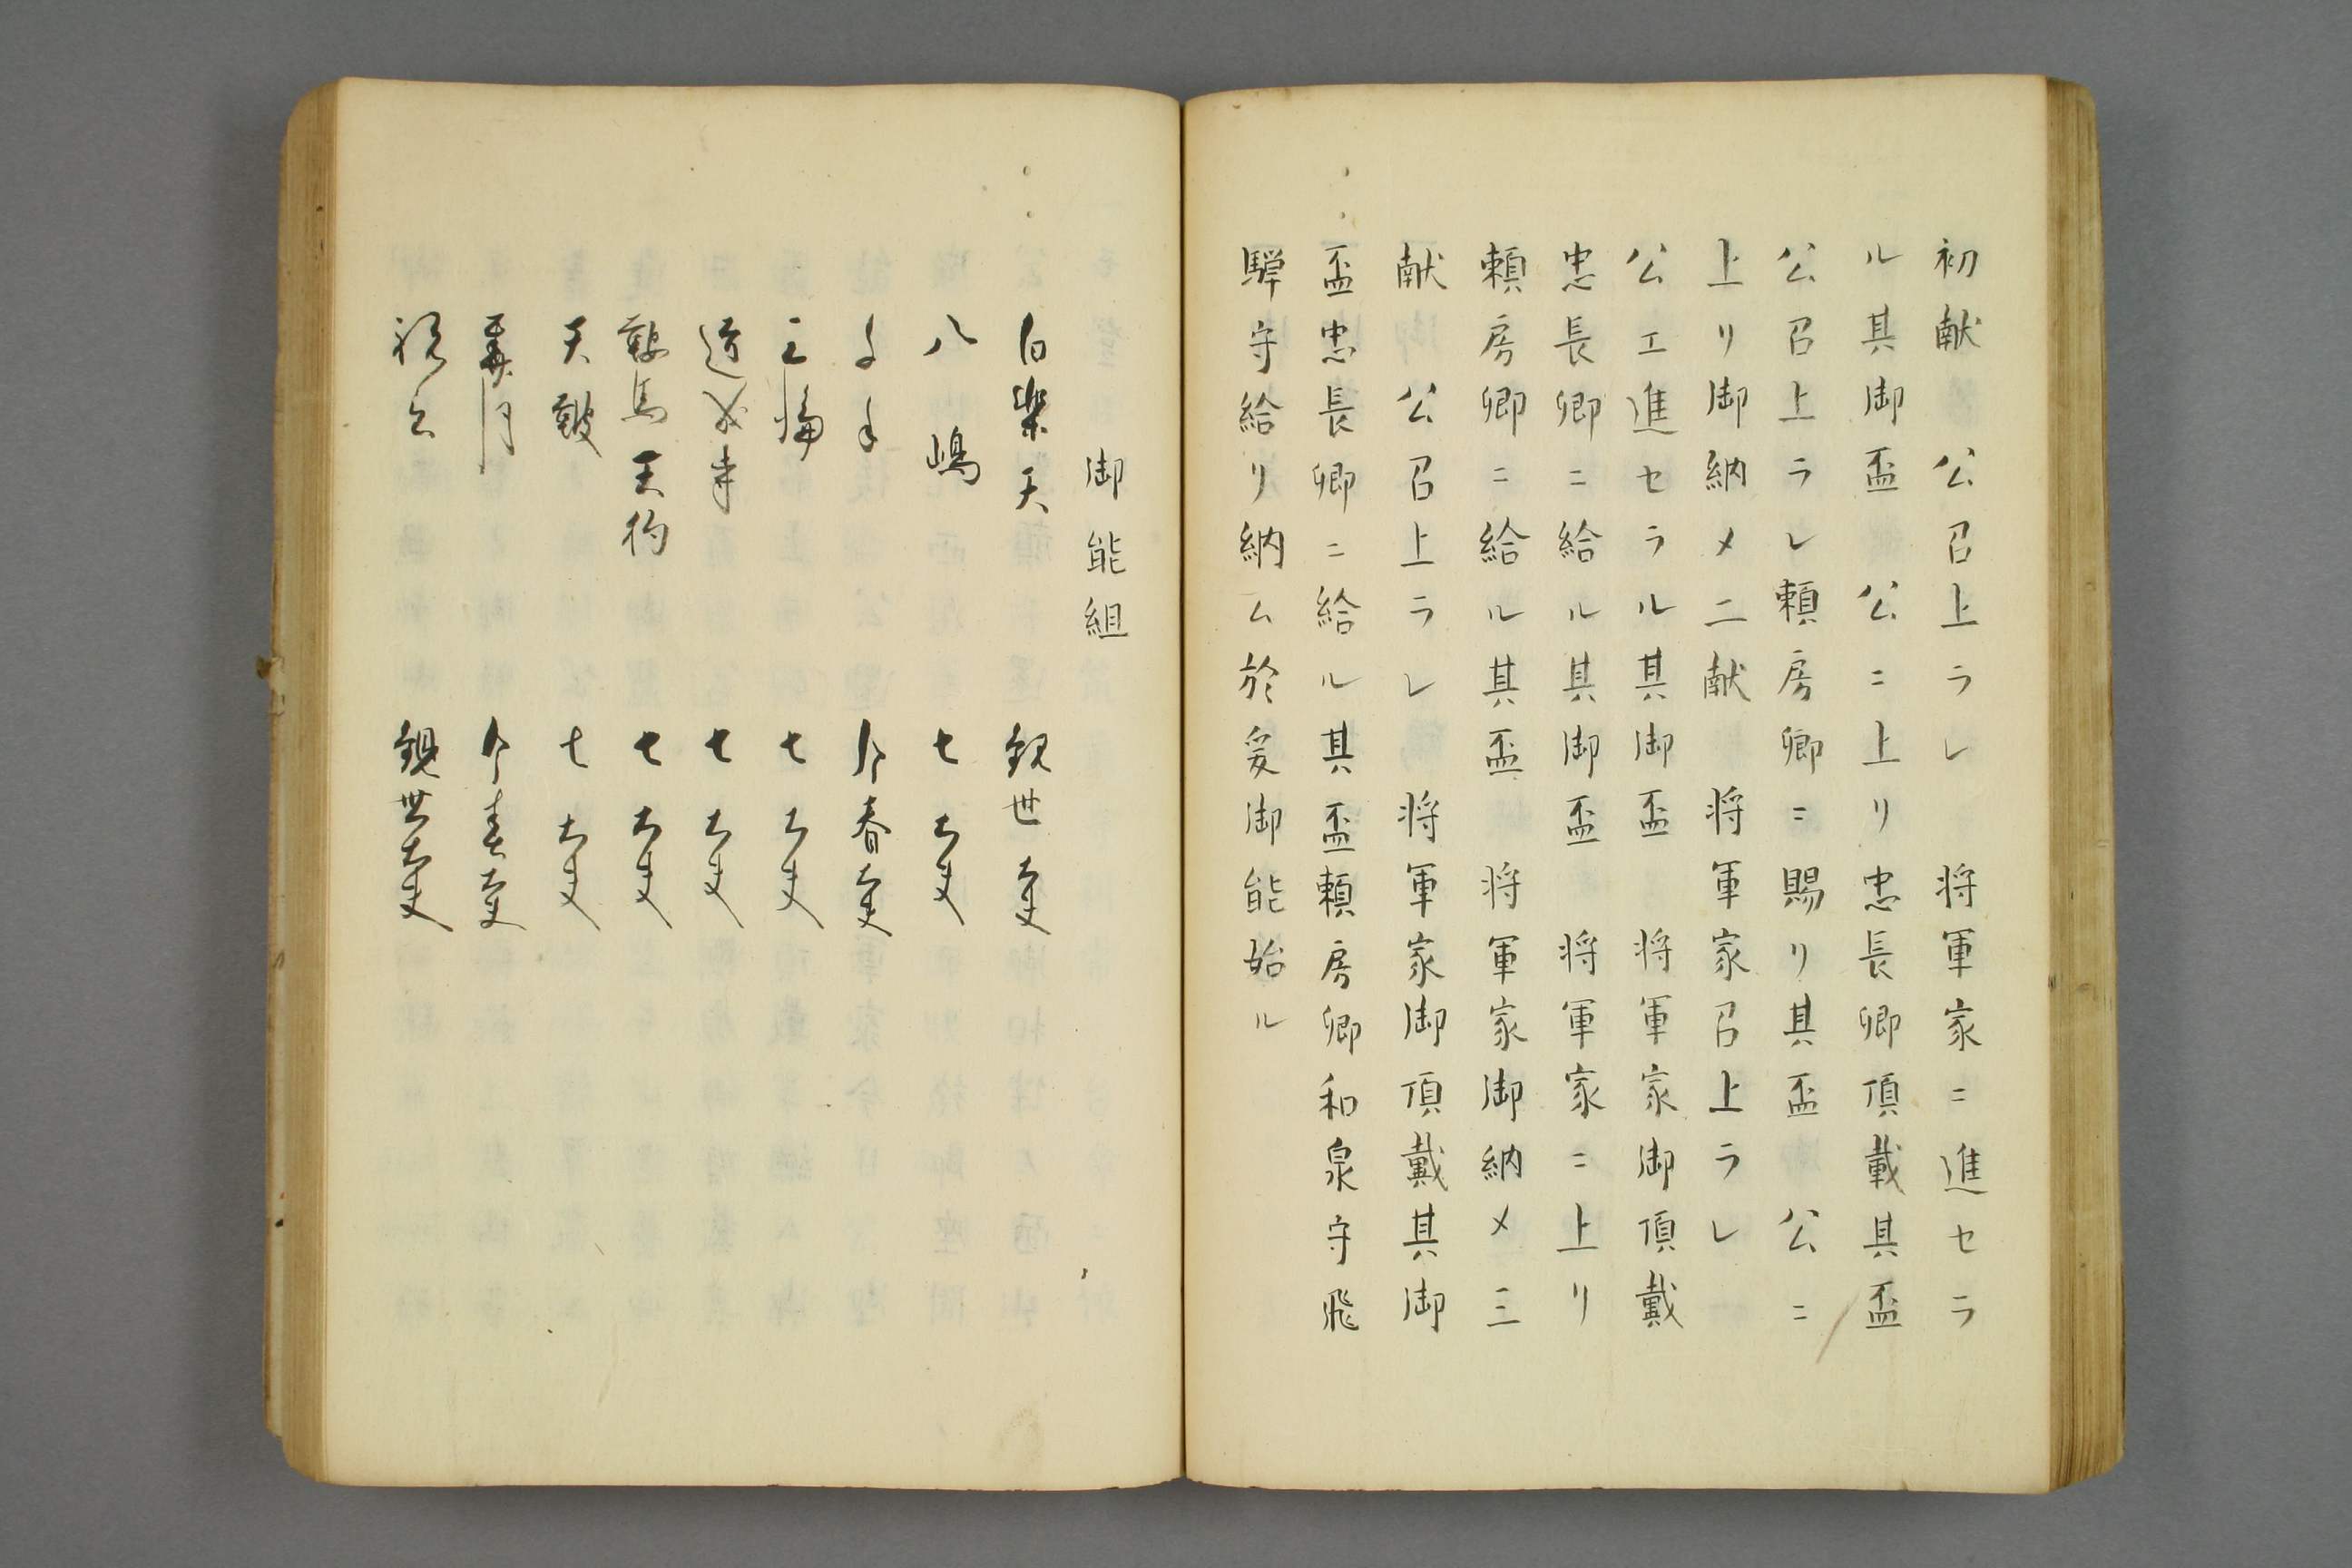 初献　公召上ラレ　将軍家ニ進セラ
ル其御盃　公ニ上リ忠長卿頂載其盃
公召上ラレ頼房卿ニ賜リ其盃　公ニ
上リ御納メ二献　将軍家召上ラレ
公エ進セラル其御盃　将軍家御頂戴
忠長卿ニ給ル其御盃　将軍家ニ上リ
頼房卿ニ給ル其盃　将軍家御納メ三
献　公召上ラレ　将軍家御頂戴其御
盃忠長卿ニ給ル其盃頼房卿和泉守飛
騨守給リ納ム於爰御能始ル
御能組
白楽天　観世大夫
八嶋　七大夫
今春大夫
三輪　七大夫
道成寺　七大夫
鞍馬天狗　七大夫
天皷　七大夫
今春大夫
祝言　観世大夫